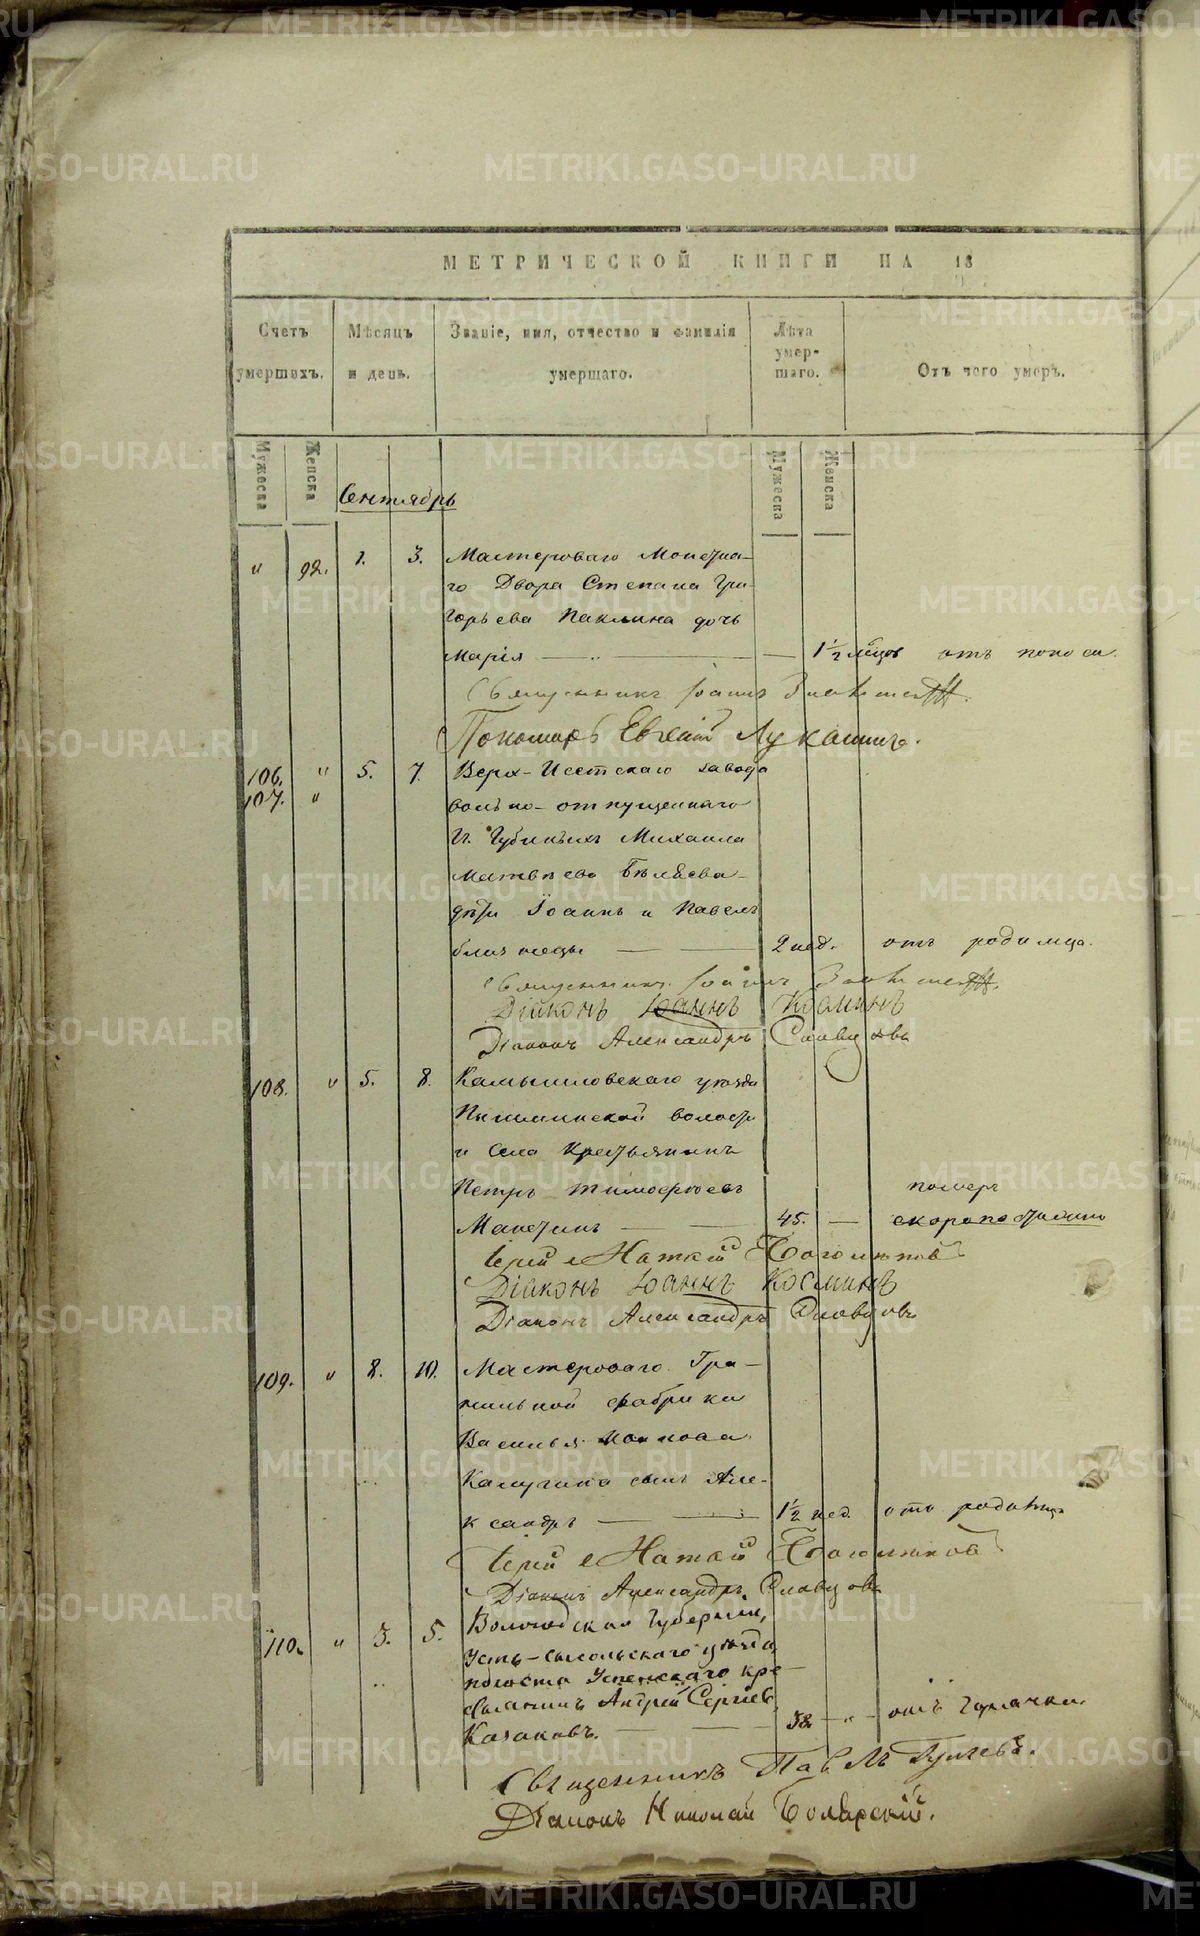 МЕТРИЧЕСКОЙ КНИГИ НА 18
Счетъ умершихъ.
Мѣсяцъ и день.
Званіе, имя, отчество и фамилія умершаго.
Лѣта умер-шаго.
Отъ чего умеръ.
Мужеска Женска
Мужеска Женска
Сентябрь
" 92. 1. 3. Мастероваго Монетна-
го Двора Степана Гри-
горьева Паклина дочь
Марія — " — — 1½ мѣсяц отъ поноса.
Священникъ Іоаннъ
Пономарь Евгеній Лукашинъ.
106. " 5. 7. Верх-Исетскаго завода
107. " вольно-отпущеннаго
Гг. Губиныхъ Михаила
Матвѣева Бѣляева
дѣти Іоаннъ и Павелъ
близнецы — — 2 нед. отъ родимца.
Священникъ Іоаннъ
Діаконъ Іоаннъ Косминъ
Діаконъ Александръ Словцовъ
108. " 5. 8. Камышловскаго уѣзда
Пышминской волости
и села крестьянинъ
Петръ Тимофѣевъ померъ
— — 45. — скоропостижно
Іерей
Діаконъ Іоаннъ Косминъ
Діаконъ Александръ Словцовъ
109. " 8. 10. Мастероваго Гра-
нильной фабрики
Василья
Калугина сынъ Але-
ксандръ — — 1½ нед. отъ родимца
Іерей
Діаконъ Александръ Словцовъ
110. " 3. 5. Вологодской Губерніи,
Усть-Сысольскаго уѣзда,
погоста Успенскаго кре-
стьянинъ Андрей Сергіевъ
Казаковъ. — — 32 — " — отъ горячки.
Священникъ Павелъ
Діаконъ Николай Боярскій.
METRIKI.GASO-URAL.RU